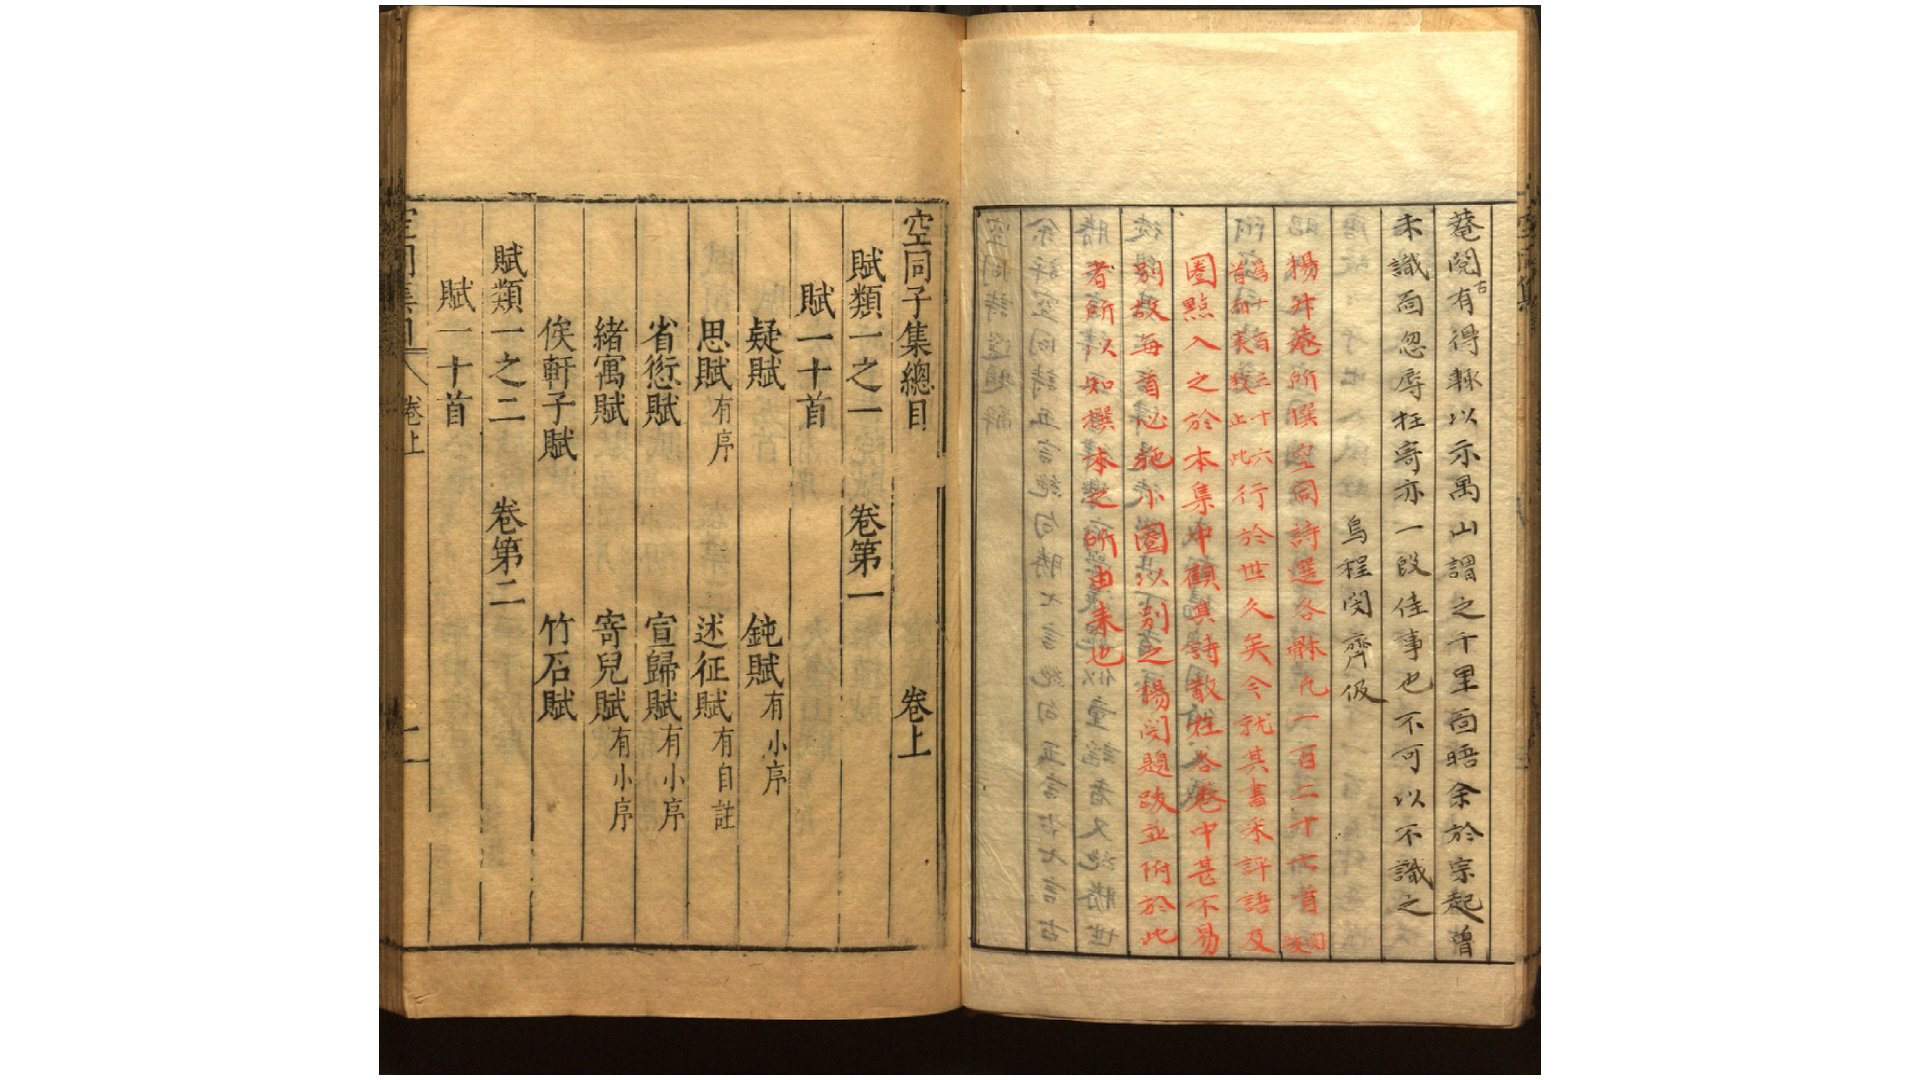 菴閱古有得輒以示禺山謂之千里面晤余於宗起曾
未識面忽辱枉寄亦一段佳事也不可以不識之
烏程閔齊伋
楊升菴所撰空同詩選各體凡一百二十七首閔跋
為一百三十六首而美跋止此行於世久矣今就其書采評語及
圈點入之於本集中顧其詩散在各卷中甚不易
別故每首必施小圈以別之楊閔題跋並附於此
者所以知撰本之所由來也
空同子集總目 卷上
賦類一之一 卷第一
賦一十首
疑賦 鈍賦有小序
思賦有序 述征賦有自註
省愆賦 宣歸賦有小序
緒寓賦 寄兒賦有小序
俟軒子賦 竹石賦
賦類一之二 卷第二
賦一十首
空同集目 卷上 一